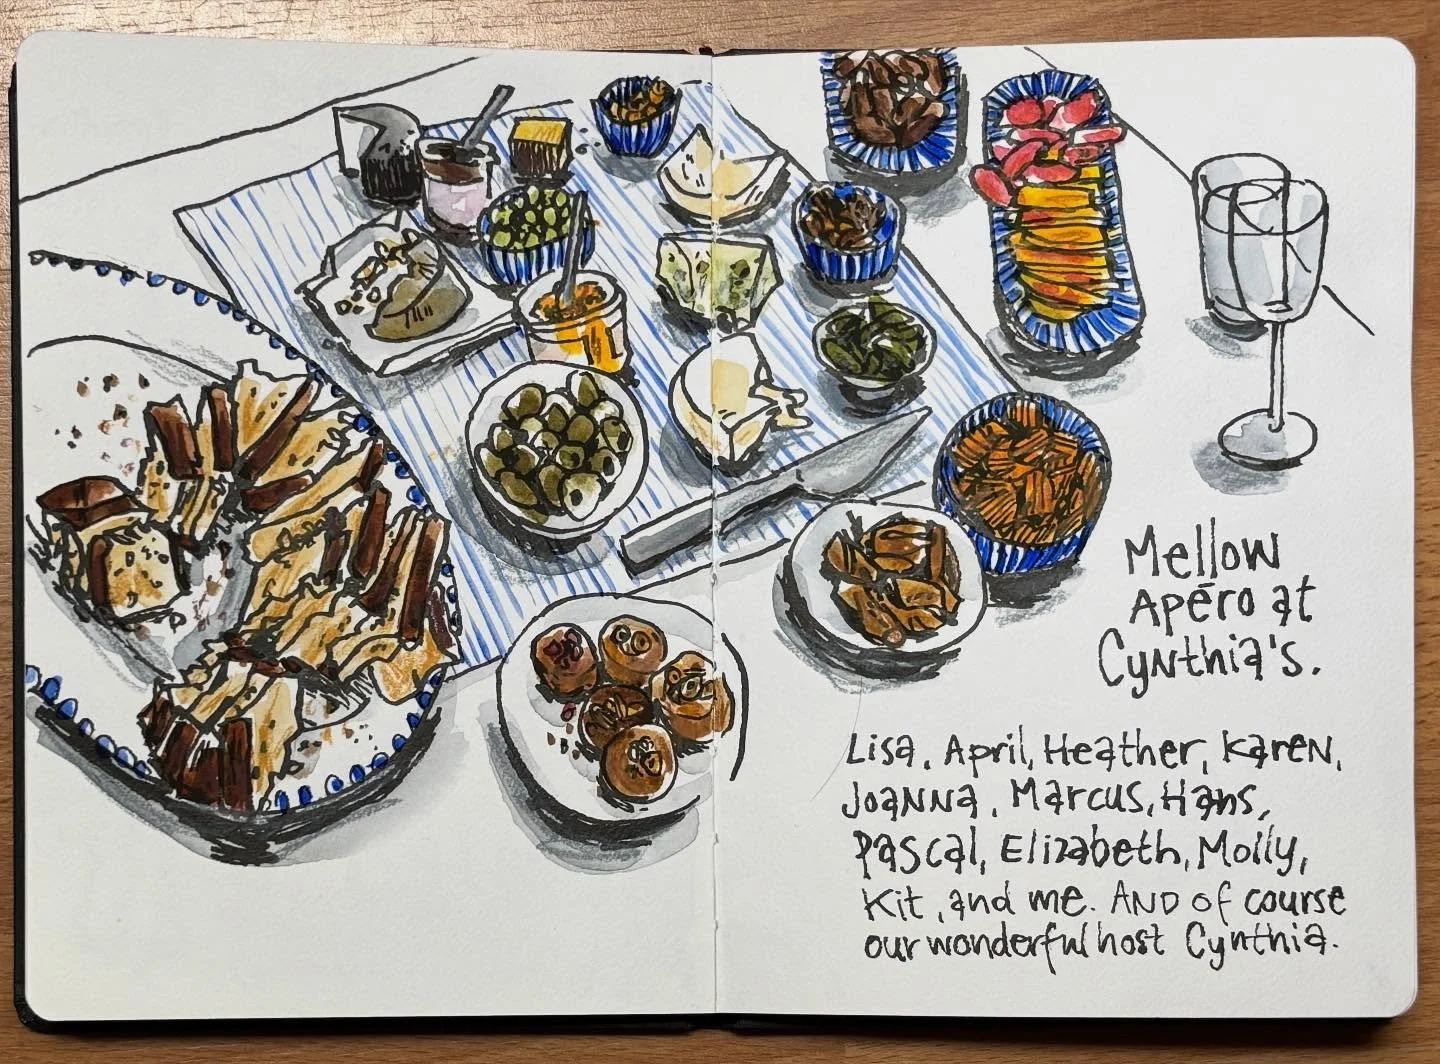 Mellow
Apéro at
Cynthia's.
Lisa, April, Heather, Karen,
Joanna, Marcus, Hans,
Pascal, Elizabeth, Molly,
Kit, and me. AND of course
our wonderful host Cynthia.